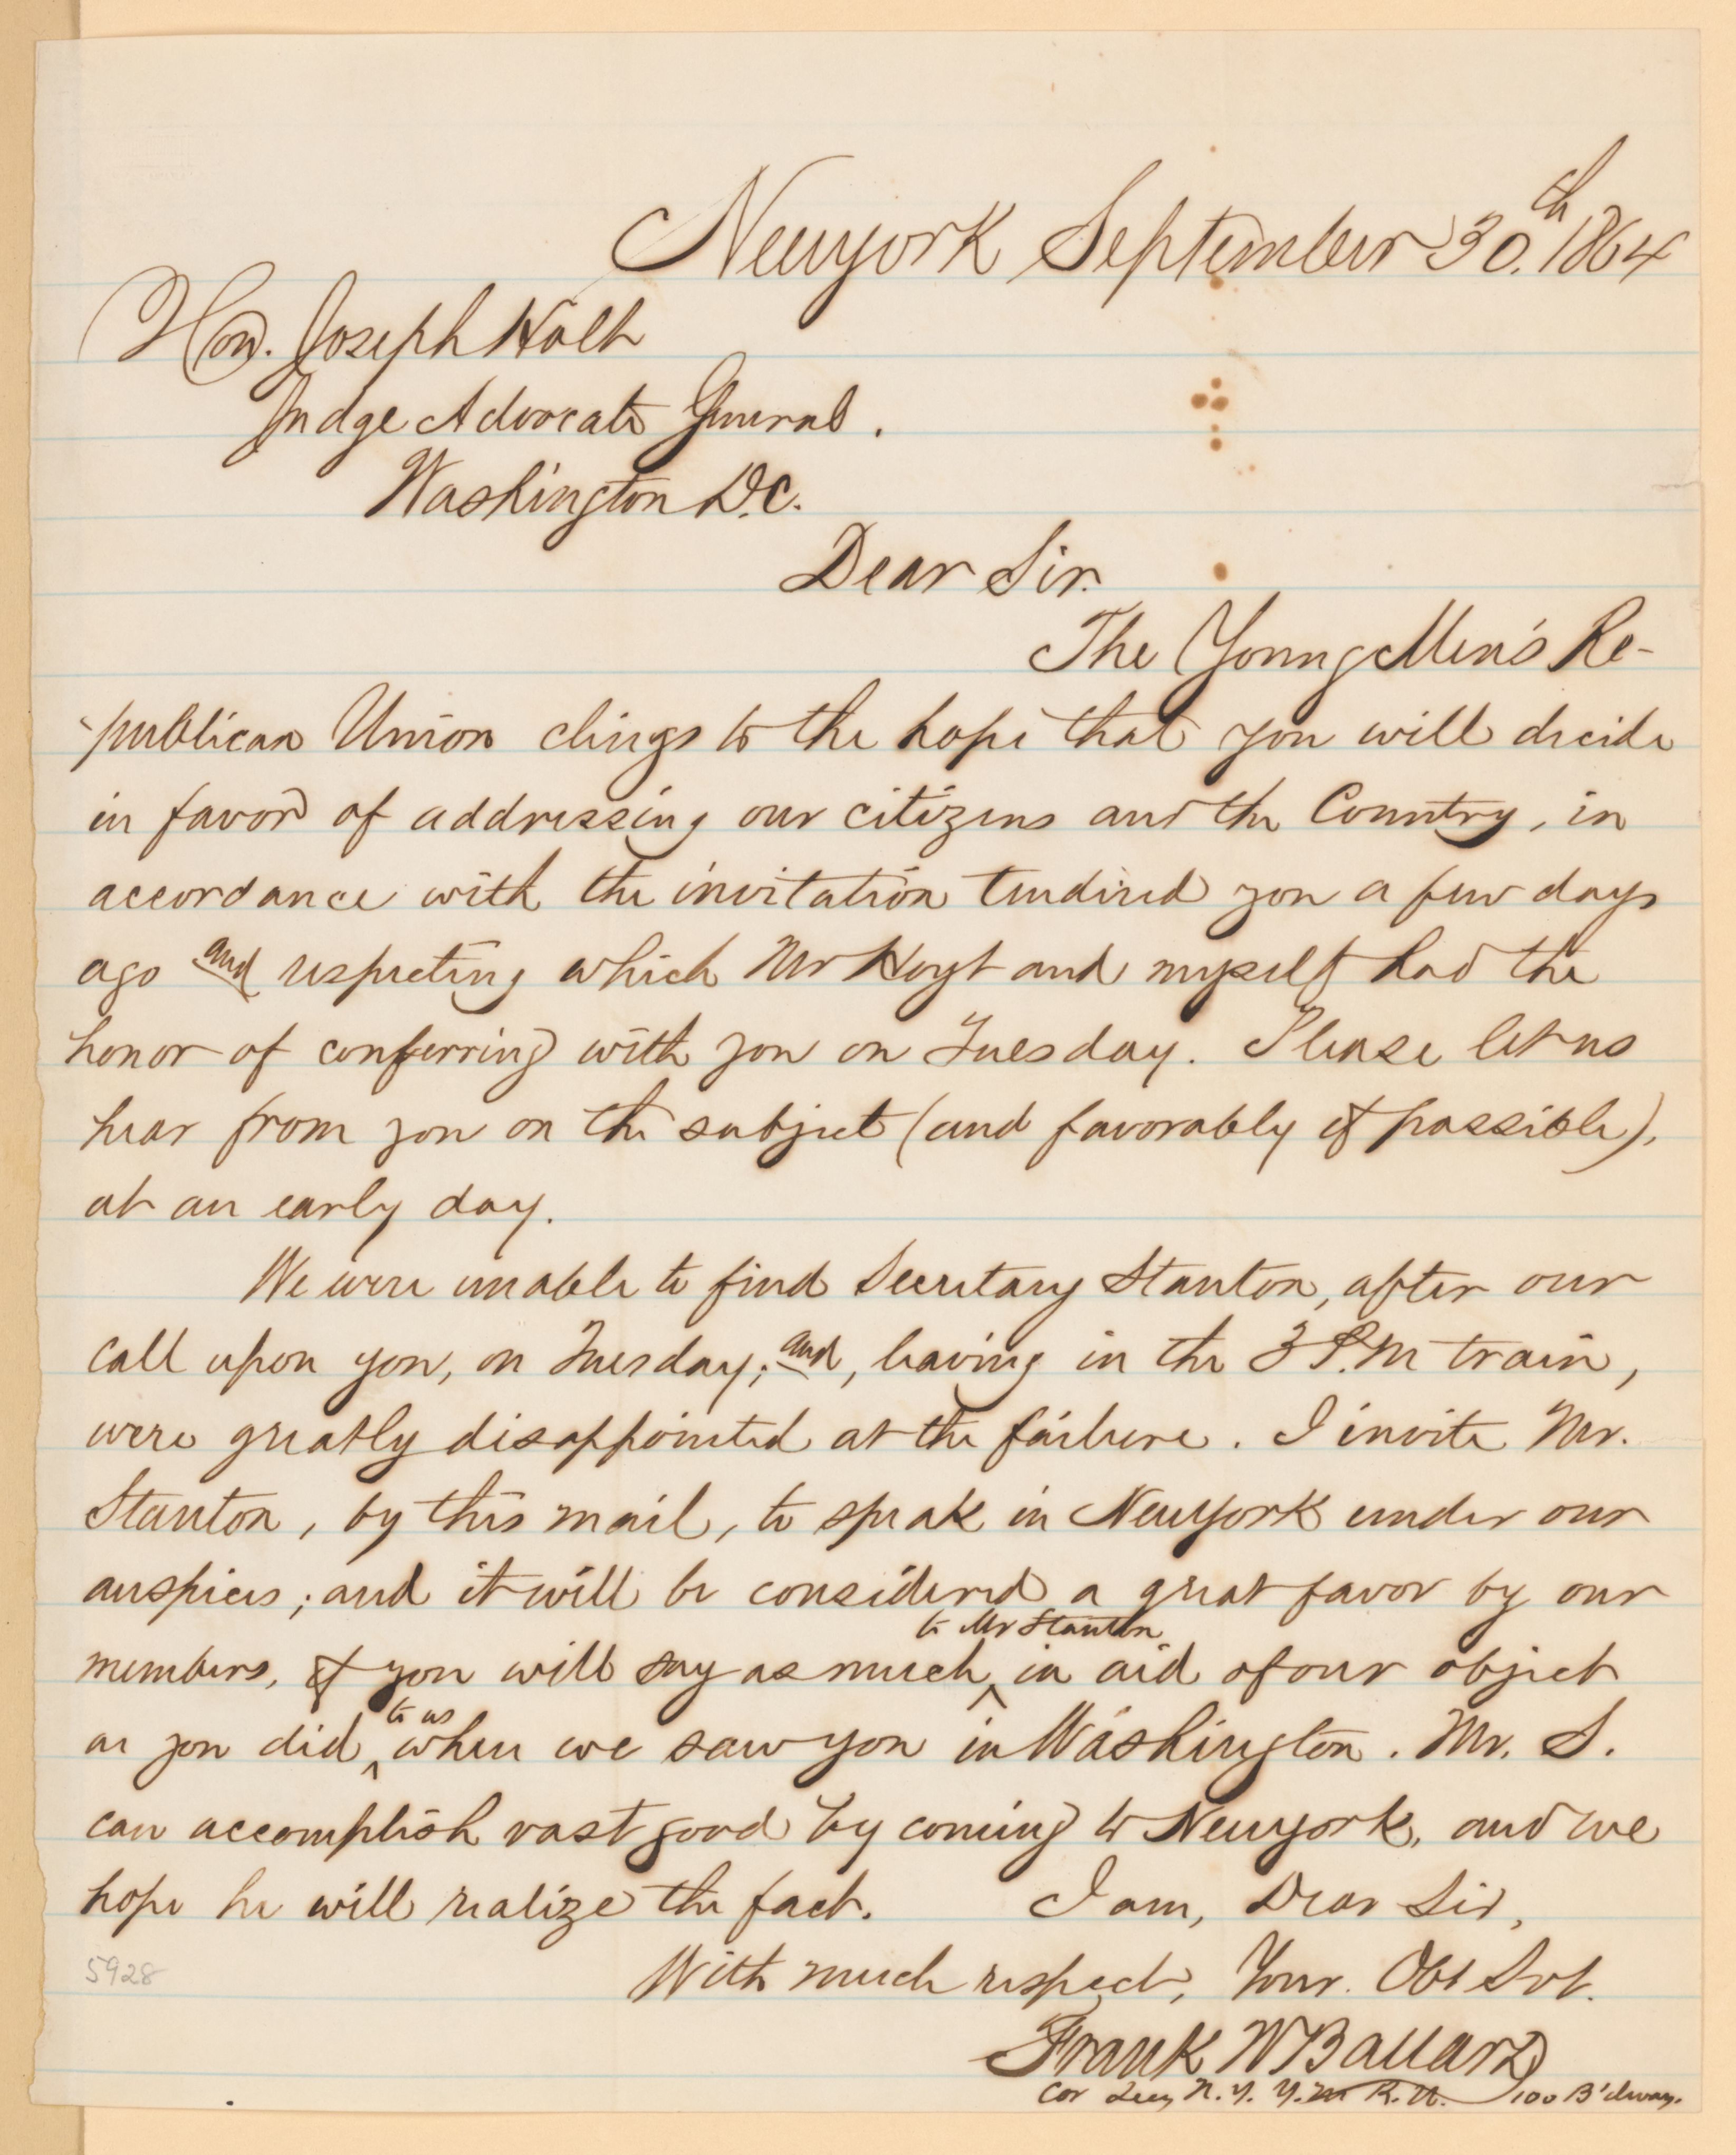 Newyork September 30.th 1864
Hon. Joseph Holt
Judge Advocate General.
Washington D.C.
Dear Sir.
The Young Men's Re-
-publican Union clings to the hope that you will decide
in favor of addressing our citizens and the Country, in
accordance with the invitation tendered you a few days
ago and respecting which Mr Hoyt and myself had the
honor of conferring with you on Tuesday. Please let us
hear from you on the subject (and favorably if possible),
at an early day.
We were unable to find Secretary Stanton, after our
call upon you, on Tuesday; and, leaving in the 3 P.M train,
were greatly disappointed at the failure. I invite Mr.
Stanton, by this mail, to speak in Newyork under our
auspices; and it will be considered a great favor by our
to Mr Stanton
members, if you will say as much ^ in aid of our object
to us
as you did ^ when we saw you in Washington. Mr. S.
can accomplish vast good by coming to Newyork, and we
hope he will realize the fact. I am, Dear Sir,
5928
With much respect, Your. Obt Svt.
Frank W Ballard
Cor Secy N.Y. Y.M R.U. 100 B'dway.